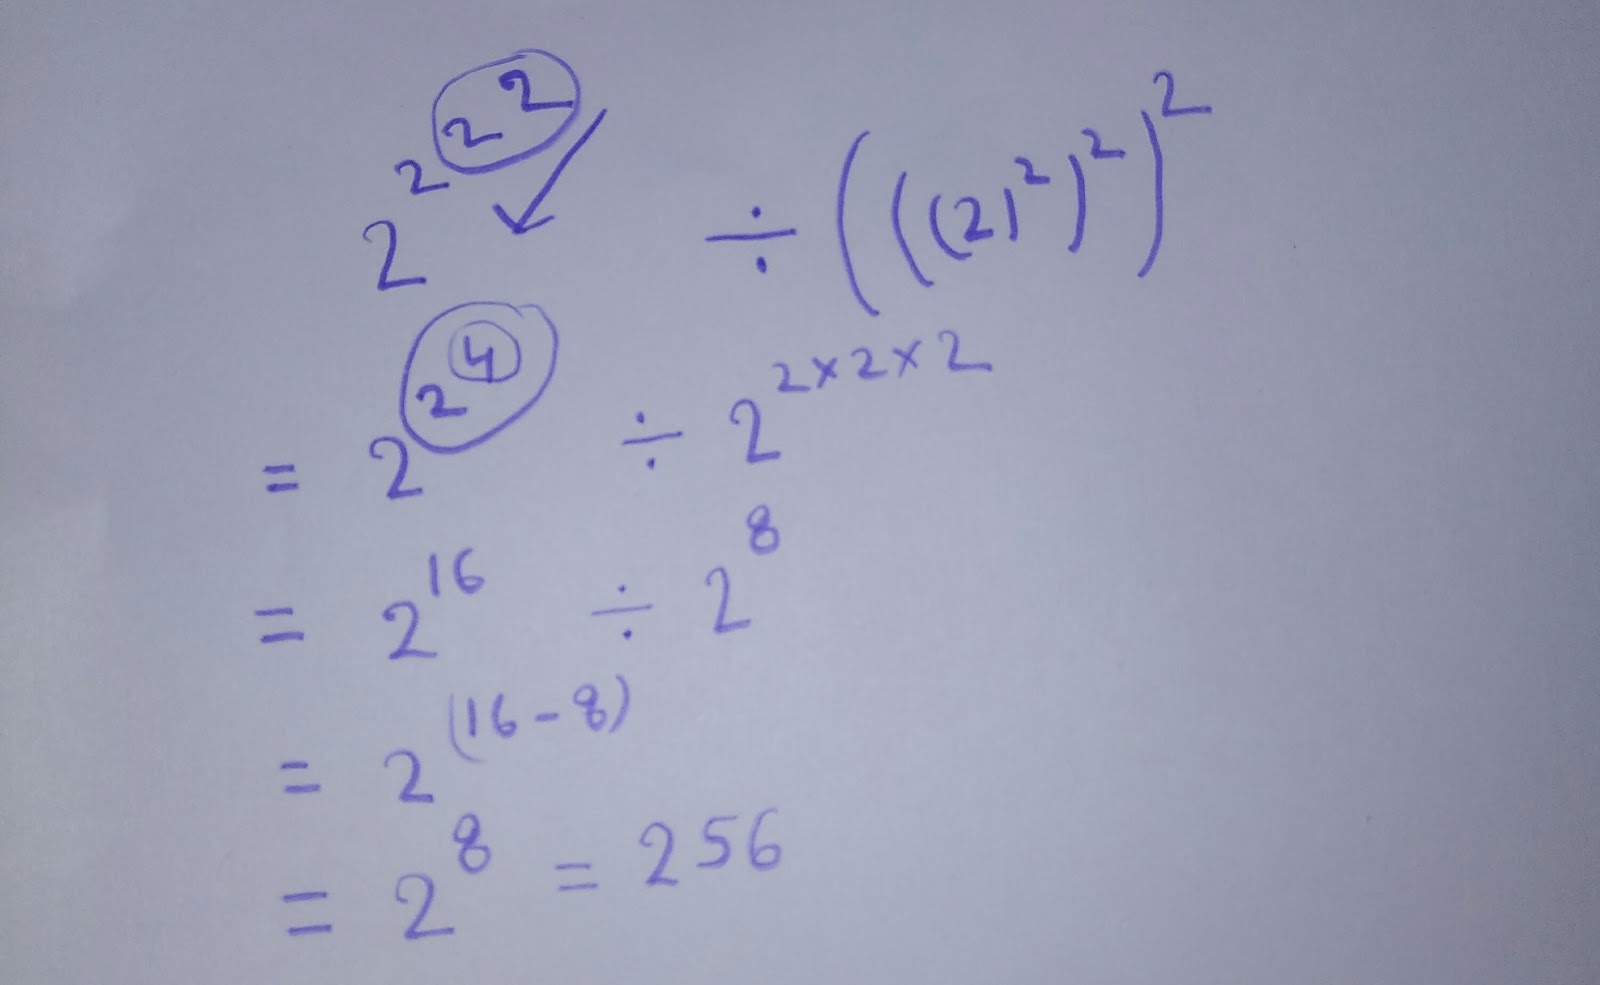 2^2^2^2 ÷ (((2)^2)^2)^2
= 2^2^4 ÷ 2^2×2×2
= 2^16 ÷ 2^8
= 2^(16-8)
= 2^8 = 256